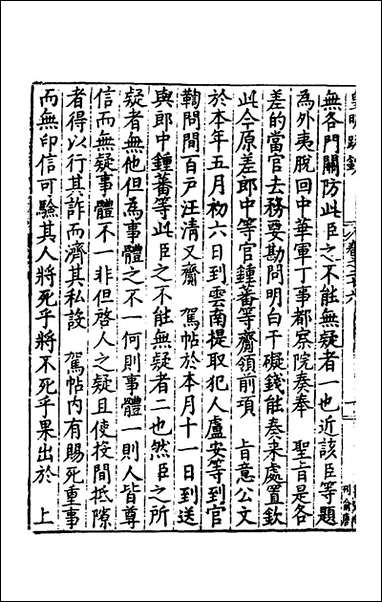 無各門關防此臣之不能無疑者一也近該臣等題
為外夷脫回中華軍丁事都察院奏奉 聖旨是各
差的當官去務要勘問明白干礙錢能奏來處置欽
此今原差郎中等官鍾蕃等齎領前項 旨意公文
於本年五月初六日到雲南提取犯人盧安等到官
鞫問間百戶汪清又齎 駕帖於本月十一日到送
與郎中鍾蕃等此臣之不能無疑者二也然臣之所
疑者無他但為事體之不一何則事體一則人皆尊
信而無疑事體不一非但啓人之疑且使投間抵隙
者得以行其詐而濟其私設 駕帖內有賜死重事
而無印信可驗其人將死乎將不死乎果出於 上